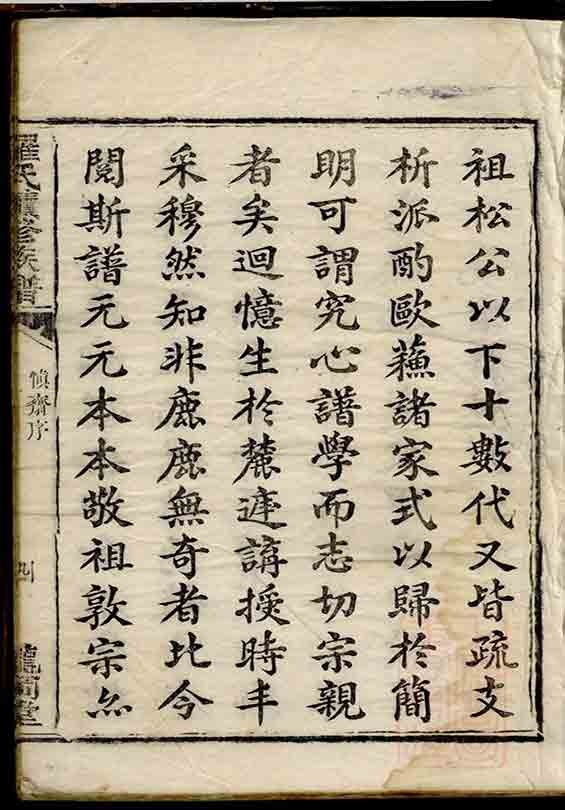 祖松公以下十數代又皆疏支
析派酌歐蘓諸家式以歸於簡
明可謂究心譜學而志切宗親
者矣迴憶生於麓遲講授時丰
采穆然知非鹿鹿無奇者比今
閱斯譜元元本本敬祖敦宗亦
羅氏續修族譜
慎齋序